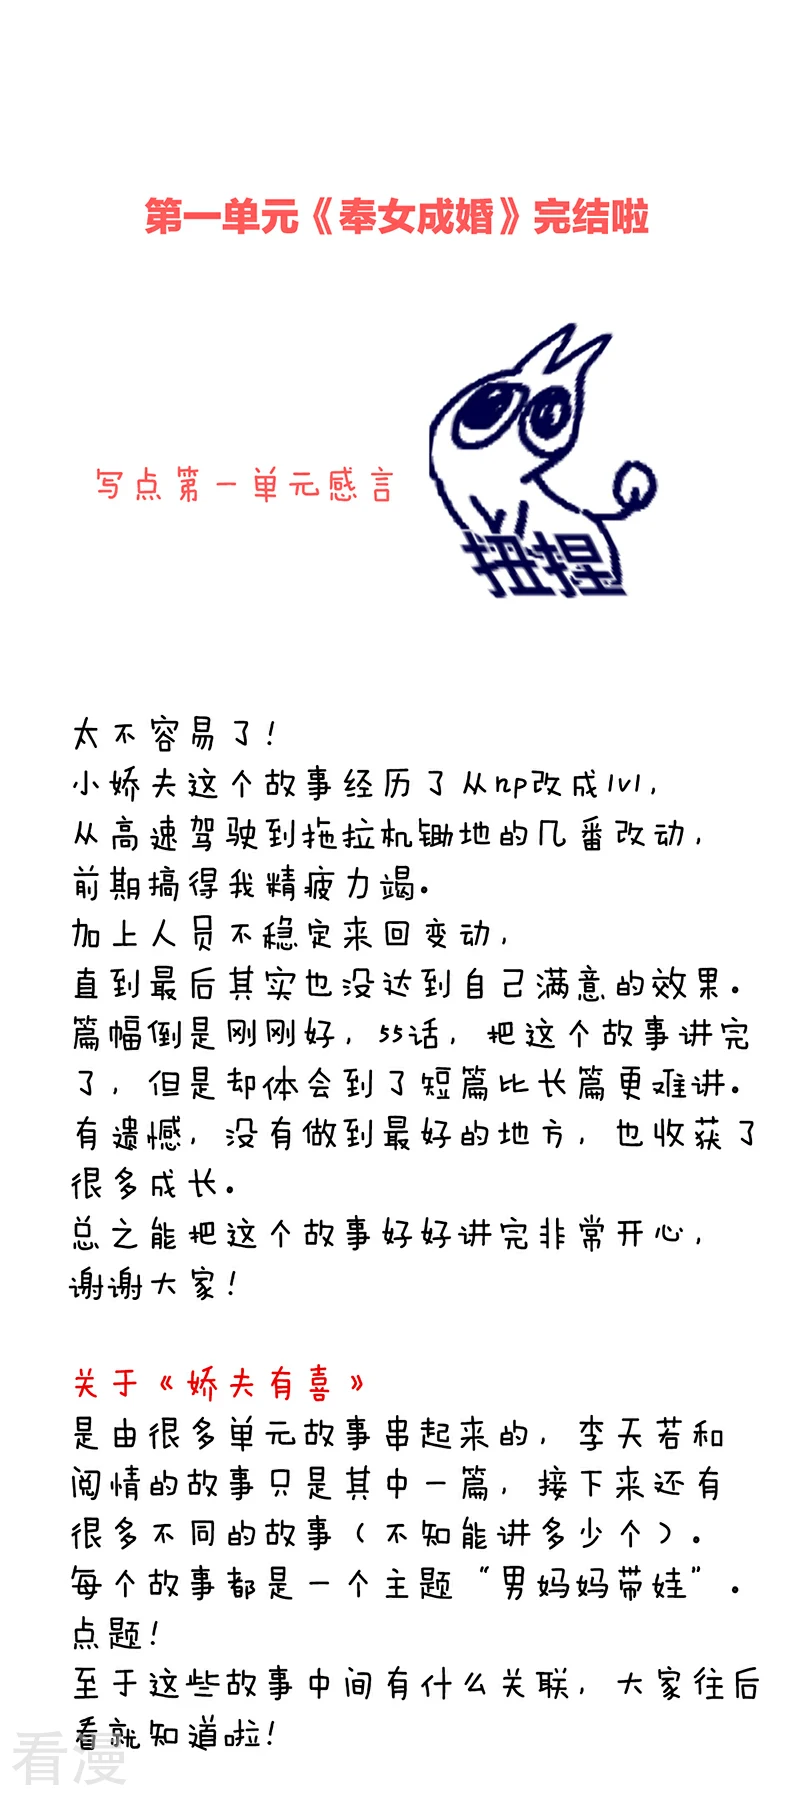 第一单元《奉女成婚》完结啦
写点第一单元感言
扭捏
太不容易了!
小娇夫这个故事经历了从np改成1v1,
从高速驾驶到拖拉机锄地的几番改动,
前期搞得我精疲力竭。
加上人员不稳定来回变动,
直到最后其实也没达到自己满意的效果。
篇幅倒是刚刚好,55话,把这个故事讲完
了,但是却体会到了短篇比长篇更难讲。
有遗憾,没有做到最好的地方,也收获了
很多成长。
总之能把这个故事好好讲完非常开心,
谢谢大家!
关于《娇夫有喜》
是由很多单元故事串起来的,李天若和
阅情的故事只是其中一篇,接下来还有
很多不同的故事(不知能讲多少个)。
每个故事都是一个主题“男妈妈带娃”。
点题!
至于这些故事中间有什么关联,大家往后
看就知道啦!
看漫